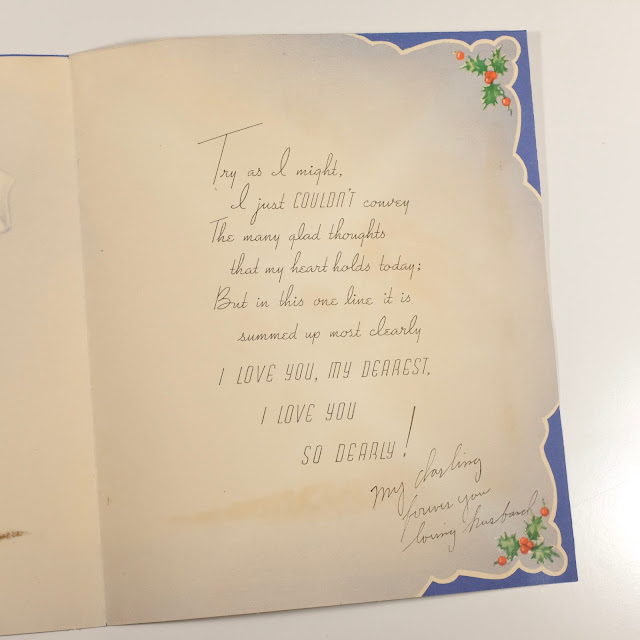 Try as I might,
I just COULDN'T convey
The many glad thoughts
that my heart holds today;
But in this one line it is
summed up most clearly
I LOVE YOU, MY DEAREST,
I LOVE YOU
SO DEARLY!
My darling
forever you
loving husband